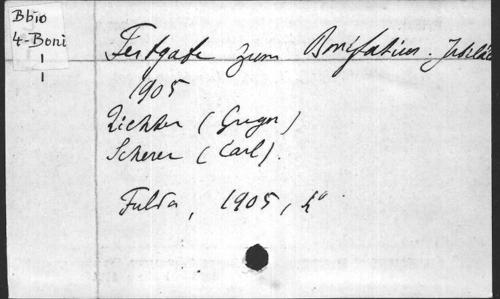 Bbio
4-Boni
Festgabe zum Bonifatius-Jubiläu
1905
Richter (Gregor)
Scherer (Carl).
Fulda, 1905, 4°